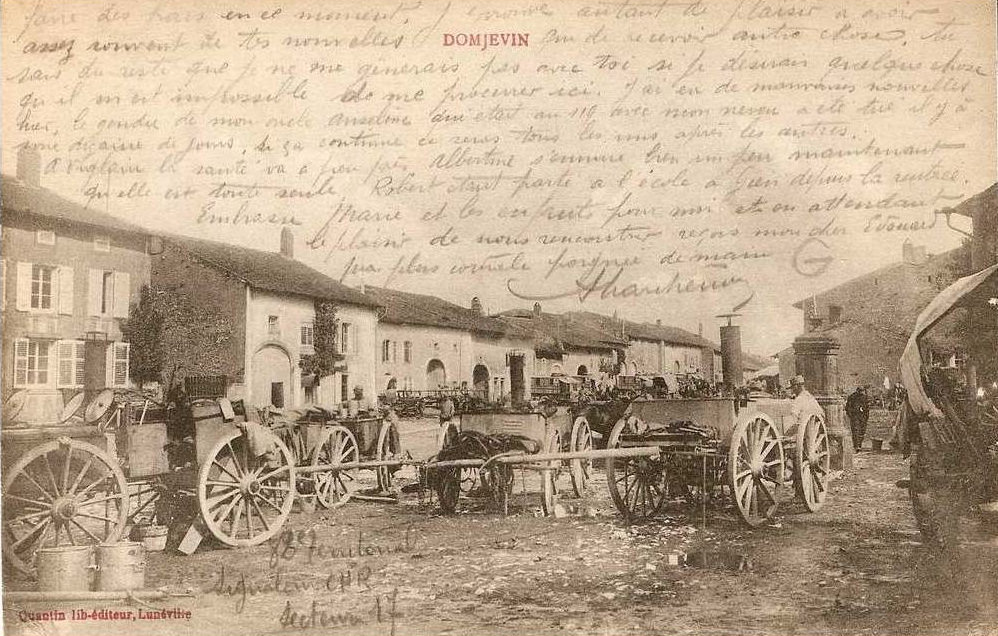 faire des frais en ce moment. J'éprouve autant de plaisir à avoir
assez souvent de tes nouvelles que de recevoir autre chose. tu
DOMJEVIN
sais du reste que je ne me génerais pas avec toi si je désirais quelque chose
qu'il m'est impossible de me procurer ici. J'ai eu de mauvaises nouvelles
hier, le gendre de mon oncle Anselme qui etait au 119 avec mon neveu a ete tué il y a
une dizaine de jours, si ça continue ce seras tous les uns après les autres.
A Viglain la santé va a peu près. Albertine s'ennuie bien un peu maintenant
qu'elle est toute seule Robert étant parti a l'école a Gien depuis la rentrée.
Embrasse Marie et les enfants pour moi et en attendant
le plaisir de nous rencontrer reçois mon cher Edouard
ma plus cordiale poignée de main
G
8e Territorial
Signaleur CHR
Secteur 17
Quantin lib-éditeur, Lunéville